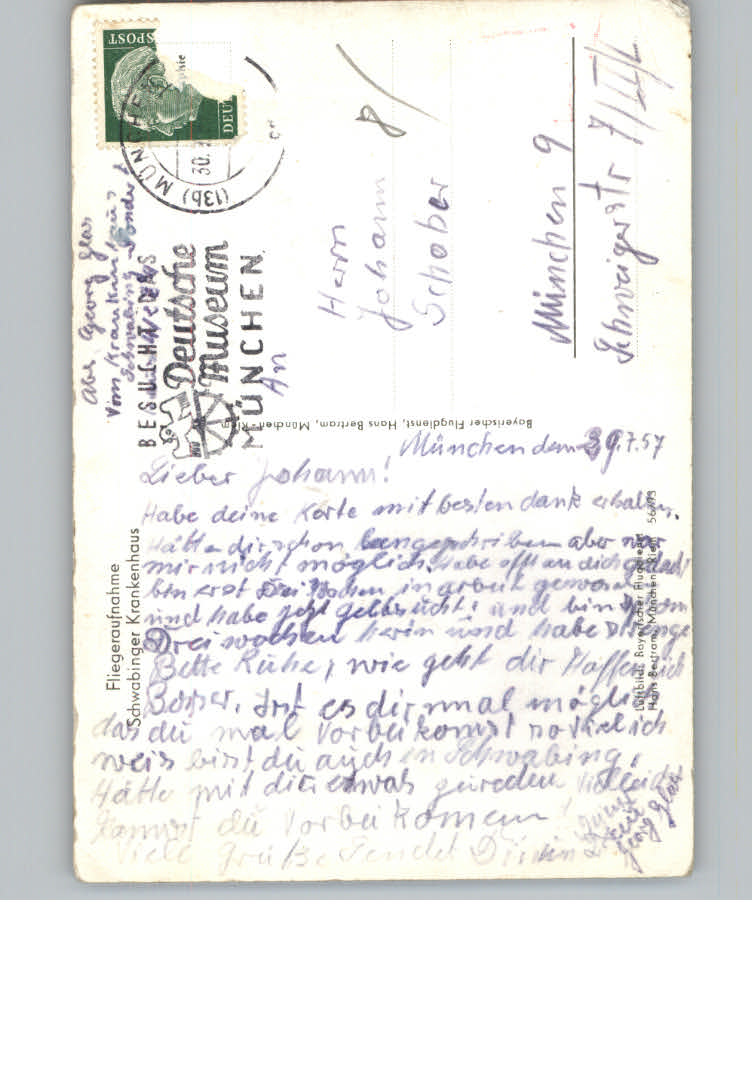 SPOST
DEUT
(13b) MÜNCHE
30.
BESUCHT DAS
Deutsche
Museum
MÜNCHEN
Abs Georg Glas
Vom Krankenhaus
Schwabing
An
Herrn
Johann
Schober
München 9
Schweigerstr 7/III/L
8/
Bayerischer Flugdienst, Hans Bertram, München-Riem
Fliegeraufnahme
Schwabinger Krankenhaus
Luftbild: Bayerischer Flugdienst
Hans Bertram, München-Riem
München den 29.7.57
Lieber Johann!
Habe deine Karte mit besten dank erhalten.
Hätte dir schon aber war
mir nicht möglich. Habe offt an dich gedacht
bin erst Drei Wochen in arbeit gewesen
und habe jetzt und bin schon
Drei wochen herin und habe strenge
Bette Ruhe, wie geht dir Hoffentlich
Besser. Ist es dir mal möglich
das du mal Vorbei komst soviel ich
weis birst du auch in Schwabing.
Hätte mit dir etwas zureden Vieleicht
kannst du Vorbei komen
Viele Grüße Sendet Dir
Georg Glas